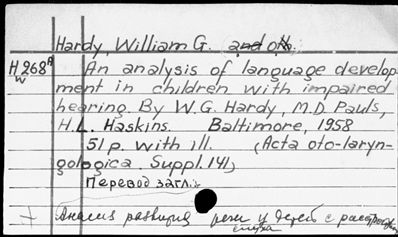 Hardy, William G. and oth.
H268A An analysis of language develop-
w ment in children with impaired
hearing. By W.G. Hardy, M.D. Pauls,
H.L. Haskins. Baltimore, 1958
51 p. with ill. (Acta oto-laryn-
gologica. Suppl. 141)
Перевод загл.:
Анализ развития речи у детей с расстройством
слуха